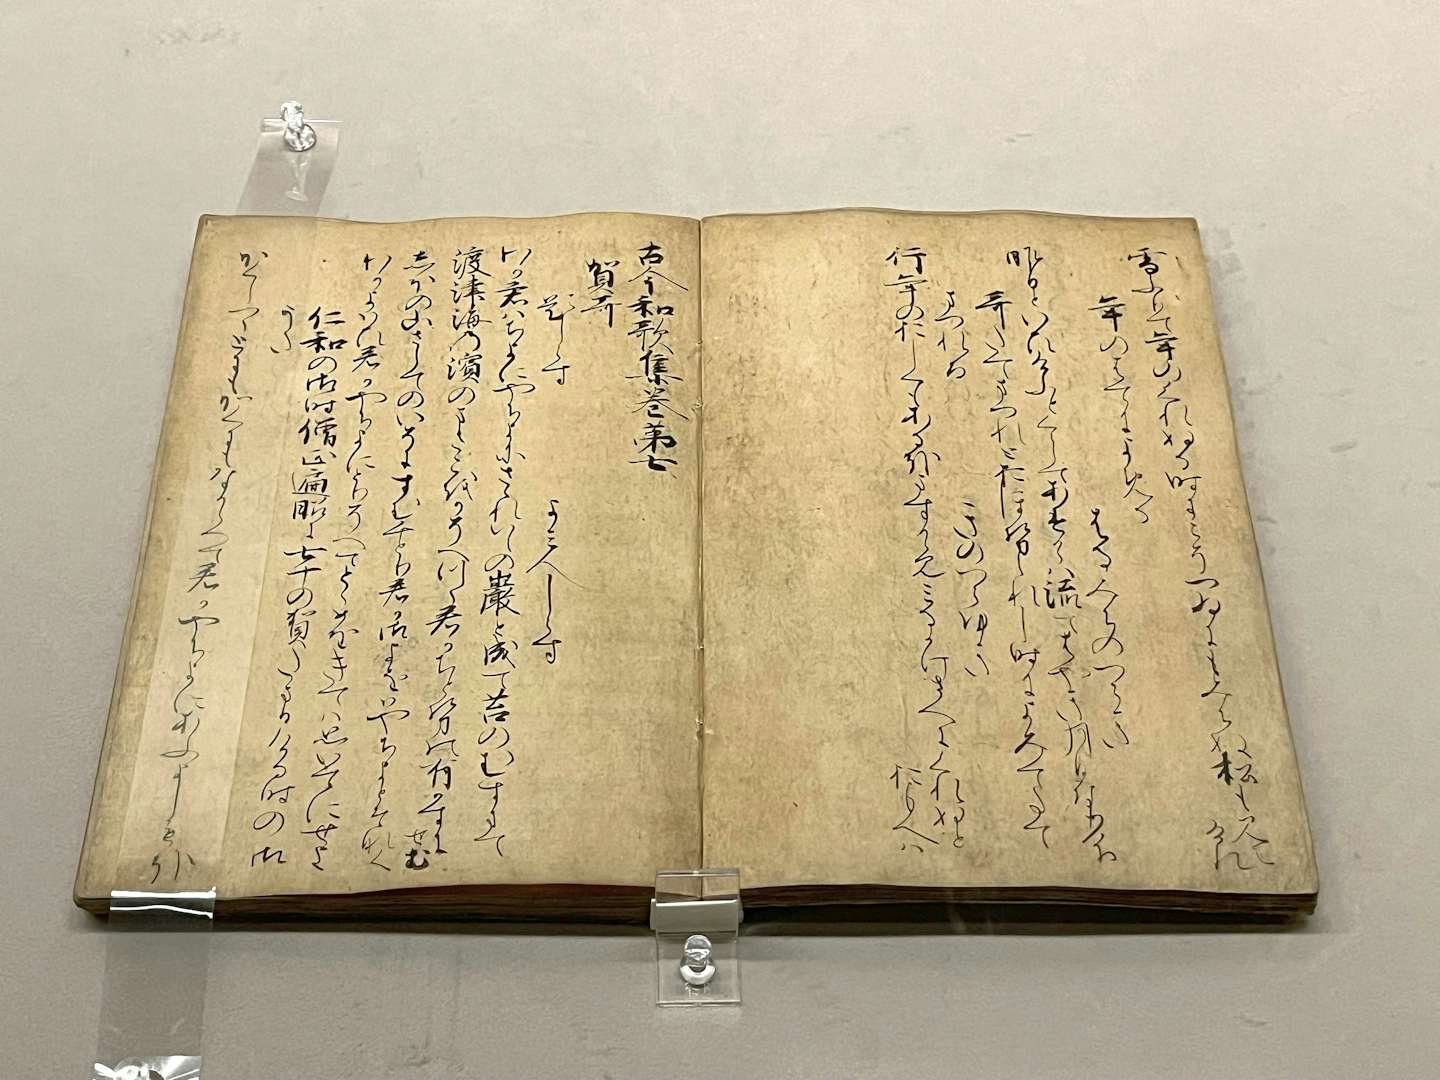 雪ふりて年のくれぬる時にこそつゐにもみちぬ松も見えけれ
年のはてによめる
はるみちのつらき
昨日といひけふとくらしてあすか川流てはやき月日なりけり
哥たてまつれとおほせられし時によみてたて
まつれる
きのつらゆき
行年のおしくもあるかなますかゝみみるかけさへにくれぬと
おもへは
古今和歌集巻第七
賀哥
題しらす
よみ人しらす
わか君はちよにやちよにさゝれいしの巌と成て苔のむすまて
渡津海の濱のまさこをかそへつゝ君かちとせの有かすにせむ
しほの山さしてのいそにすむ千とり君か御よをはやちよとそなく
わかよはひ君かやちよにとりそへてとゝめをきては思いてにせよ
仁和の御時僧正遍昭に七十の賀たまひける時の御
うた
かくしつゝとにもかくにもなからへて君かやちよにあふよしもかな